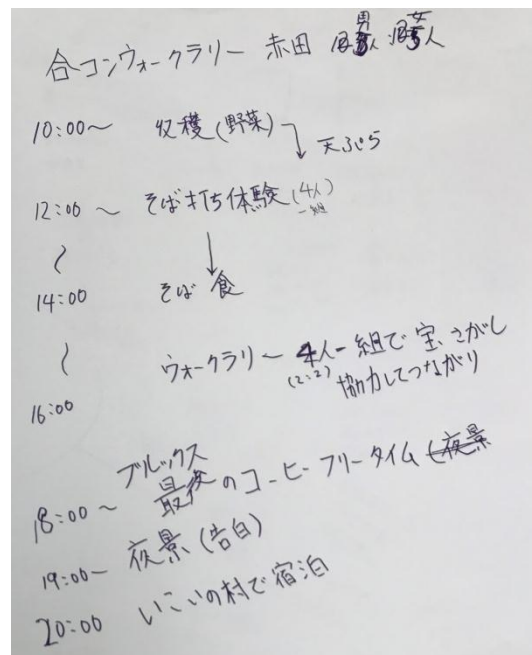 合コンウォークラリー 赤田 男 人 女 人
10:00～ 収穫(野菜) → 天ぷら
12:00～ そば打ち体験(4人一組)
～ ↓
14:00 そば食
～ ウォークラリー 4人一組で宝さがし
(2:2) 協力してつながり
16:00
ブルックス
18:00～ 最後のコーヒーフリータイム (夜景
19:00～ 夜景(告白)
20:00 いこいの村で宿泊